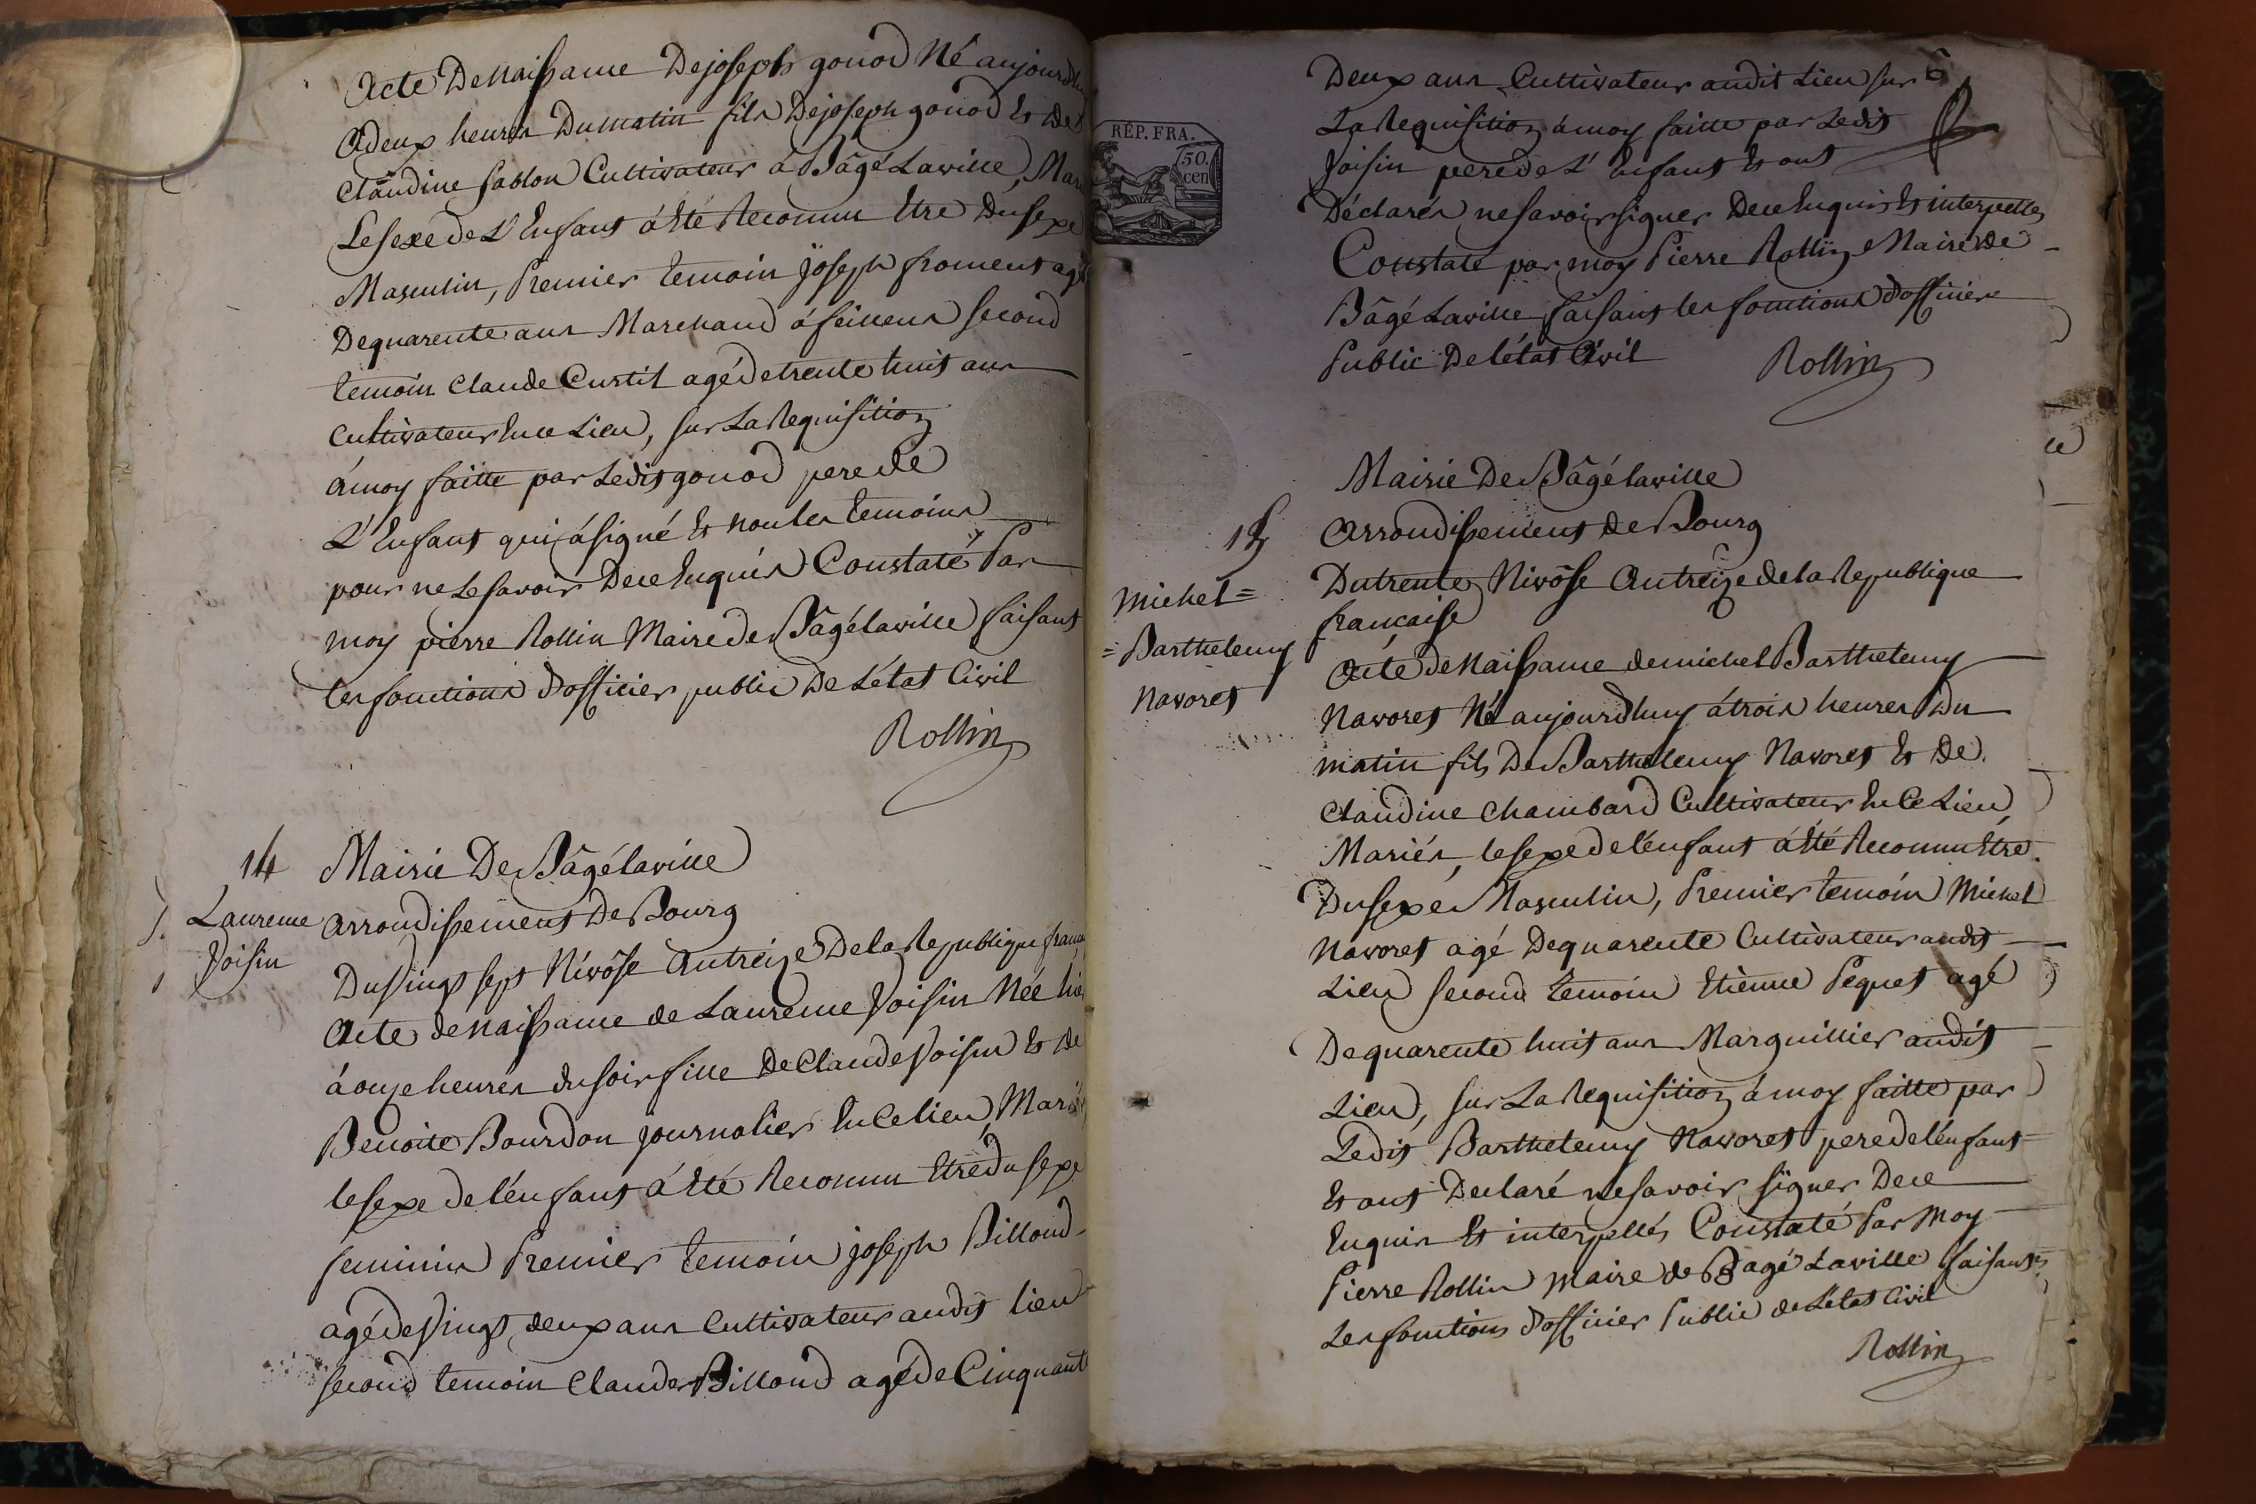 Acte De Naissance De joseph gonod Né aujourdhu
A deux heures Du matin fils De joseph gonod Et De
Claudine Sablon Cultivateur á Bâgé Laville, Mar
Le sexe de L'Enfant á Eté Reconnu Etre Du sexe
Masculin, Premier temoin joseph froment agé
De quarente ans Marchand á feillens second
temoin Claude Curtil agé de trente huit ans
Cultivateur En ce Lieu, sur La Requisition
á moy faitte par Ledit gonod pere de
L'Enfant qui á signé Et non les temoins
pour ne Le savoir De ce Enquis Constaté Par
moy pierre Rollin Maire de Bâgé laville faisant
les fonctions d'officier public De L'état Civil
Rollin
14
Laurence
Voisin
Mairie De Bâgé laville
arrondissement De Bourg
Du Vingt sept Nivôse an treize De la Republique franç
Acte de Naissance de Laurence Voisin Née hie
á onze heures du soir fille De Claude Voisin Et de
Benoite Bourdon journalier En Ce lieu, Mariés
le sexe de l'énfant á Eté Reconnu Etre du sexe
feminin Premier temoin joseph Billoud
agé de Vingt deux ans Cultivateur audit lieu
second temoin Claude Billoud agé de Cinquante
RÉP. FRA.
50.
cen
Deux ans Cultivateur audit Lieu sur
La Requisition á moy faitte par Ledit
Voisin pere de L'Enfant Et ont
Déclarés ne savoir signer De ce Enquis Et interpellés
Constaté par moy Pierre Rollin Maire de
Bâgé Laville faisant les fonctions d'officier
Public De l'état Civil
Rollin
15
Michel=
=Barthelemy
Navoret
Mairie De Bâgé laville
Arrondissement de Bourg
Du trente Nivôse An treize de la Republique
française
Acte de Naissance de michel Barthelemy
Navoret Né aujourdhuy á trois heures Du
matin fils De Barthelemy Navoret Et De
Claudine Chambard Cultivateur En Ce Lieu,
Mariés, le sexe de l'énfant á Eté Reconnu Etre
Du sexe Masculin, Premier temoin Michel
Navoret agé De quarente Cultivateur audit
Lieu second temoin Etienne Pequet agé
De quarente huit ans Marguillier audit
Lieu, sur La Requisition á moy faitte par
Ledit Barthelemy Navoret pere de l'énfant
Et ont Declaré ne savoir signer De ce
Enquis Et interpellés Constaté Par Moy
Pierre Rollin maire de Bagé Laville faisant
Les fonctions d'officier Public de L'état Civil
Rollin